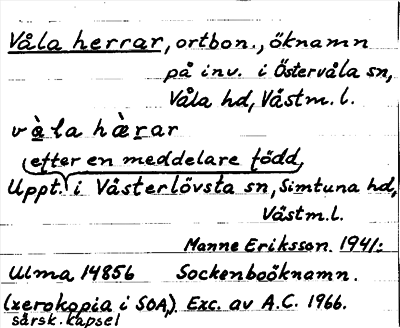 Våla herrar, ortbon., öknamn
på inv. i Östervåla sn,
Våla hd, Västm.l.
và̱la hæ̀ṟar
efter en meddelare född,
Uppt. i Västerlövsta sn, Simtuna hd,
Västm.l.
Manne Eriksson. 1941:
Ulma 14856 Sockenboöknamn.
(xerokopia i SOA,). Exc. av A.C. 1966.
särsk. kapsel